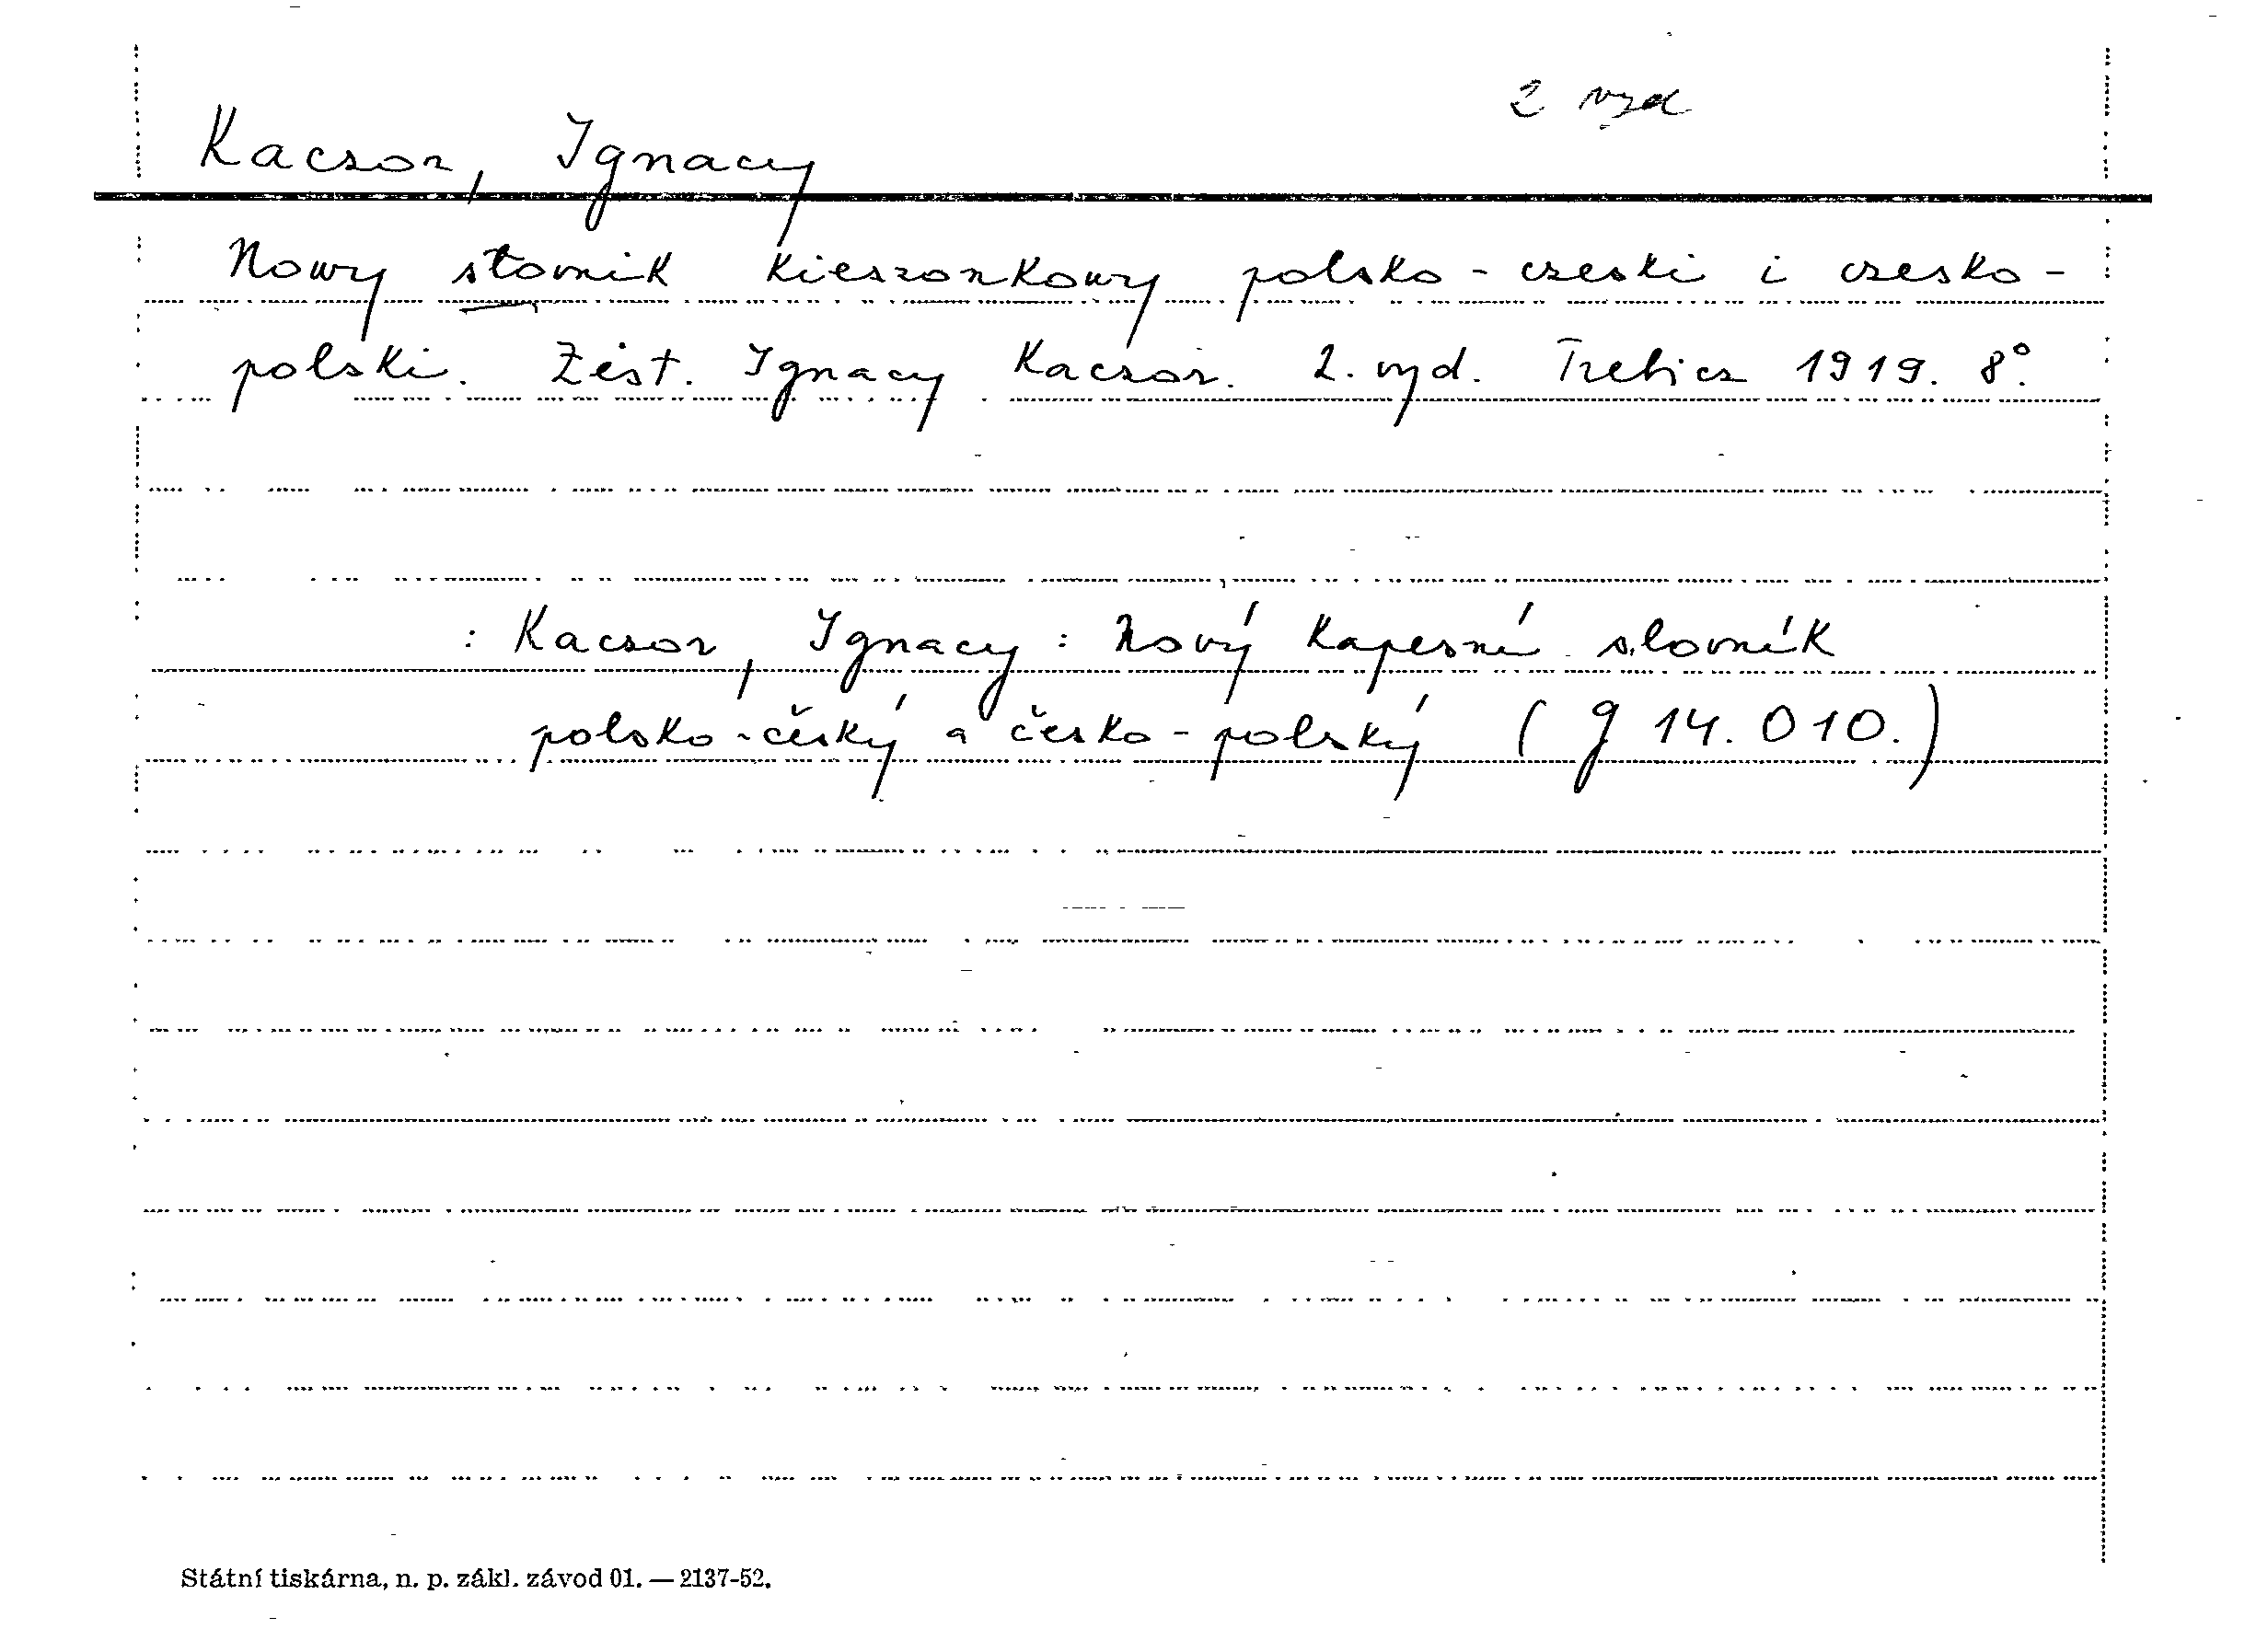 2 vyd
Kaczor, Ignacy
Nowy słovnik kieszonkowy polsko-czeski i czesko-
polski. Zest. Ignacy Kaczor. 2. vyd. Trebicz 1919. 8°.
: Kaczor, Ignacy: Nový kapesní slovník
polsko-český a česko-polský (g 14.010.)
Státní tiskárna, n. p. zákl. závod 01. — 2137-52.